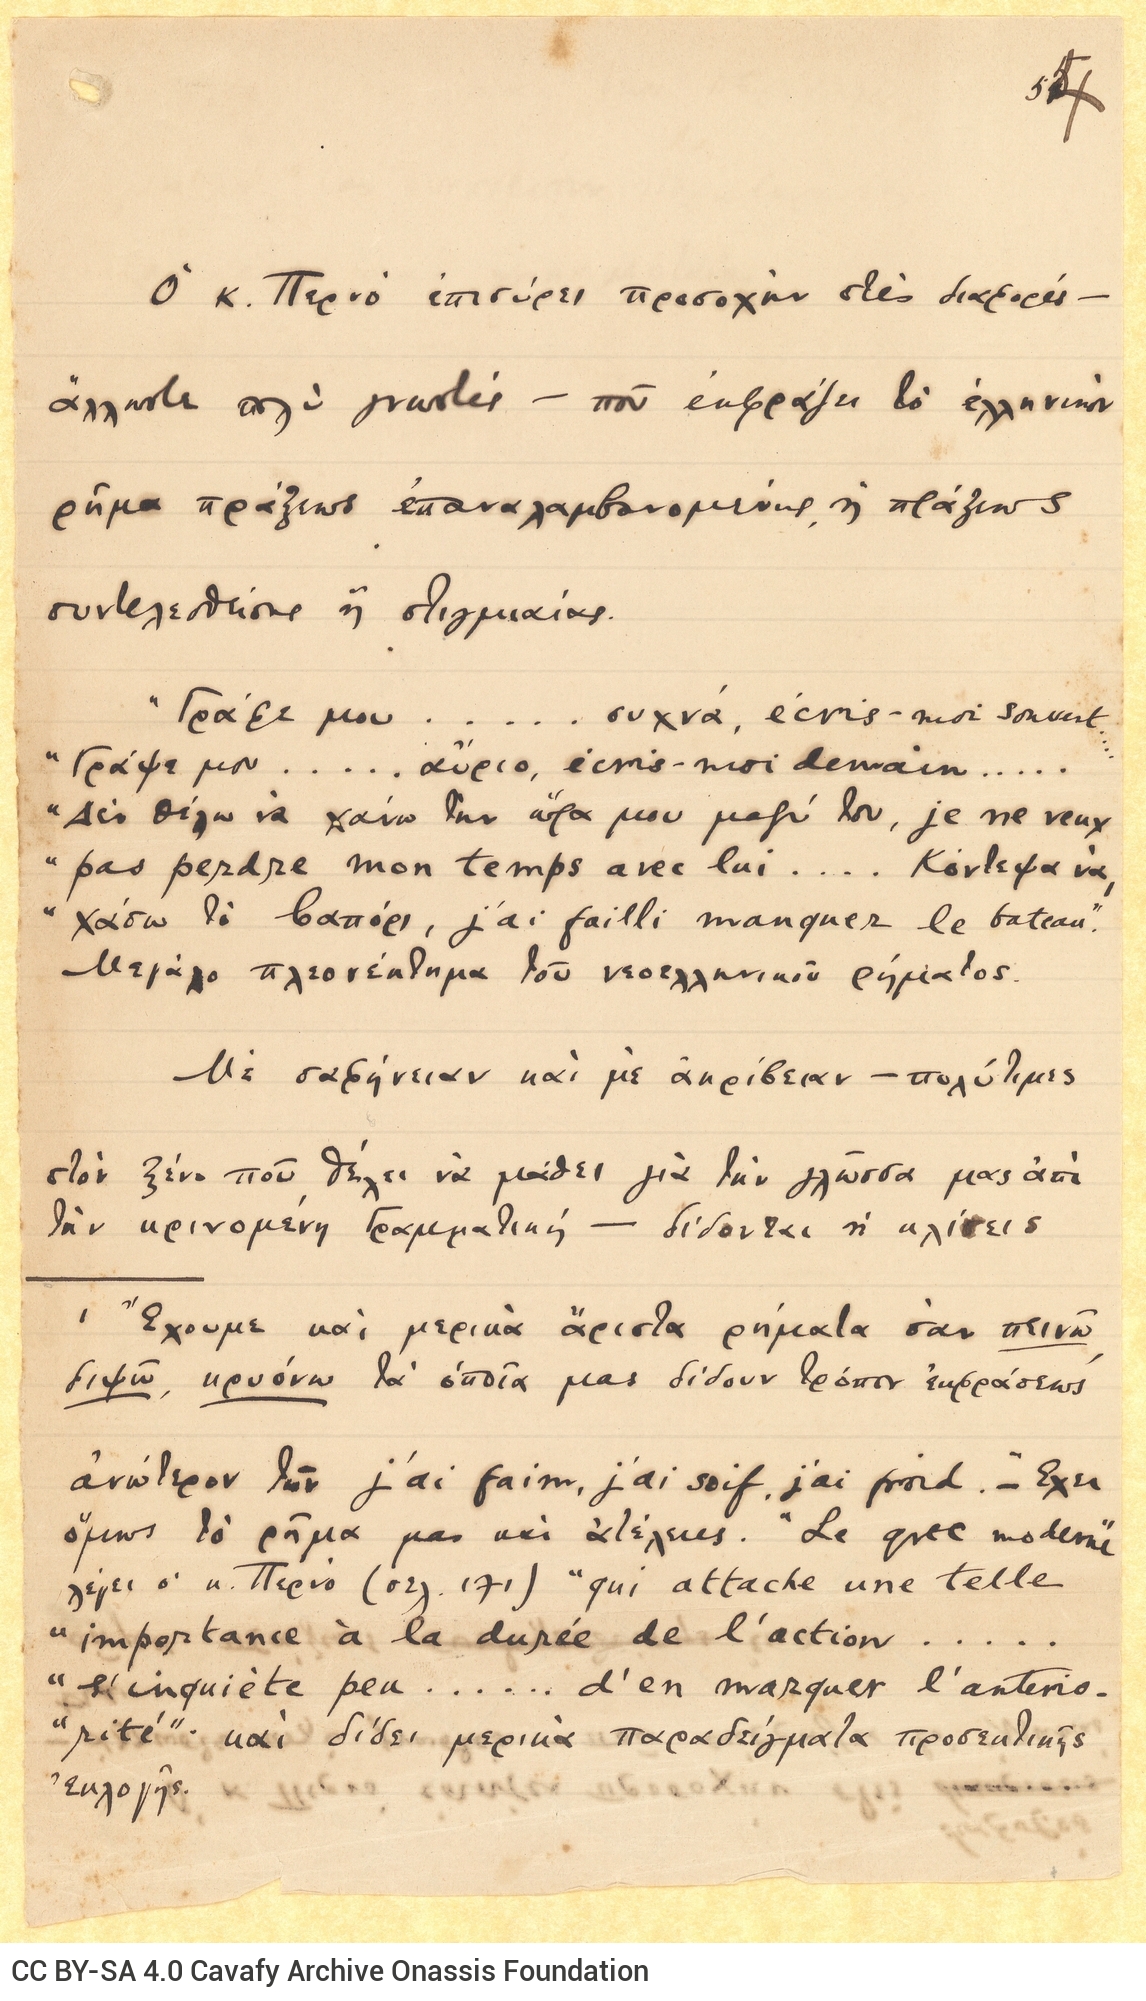 Ὁ κ. Περνὸ ἐπισύρει προσοχὴν στὲς διαφορές —
ἄλλωστε πολὺ γνωστές — ποῦ ἐκφράζει τὸ ἑλληνικὸν
ρῆμα πράξεως ἐπαναλαμβανομένης, ἢ πράξεως
συντελεσθείσης ἢ στιγμιαίας.
"Γράφε μου . . . . . συχνά, écris-moi souvent....
"Γράψε μου . . . . . αὔριο, écris-moi demain.....
"Δὲν θέλω νὰ χάνω τὴν ὥρα μου μαζύ του, je ne veux
"pas perdre mon temps avec lui . . . . Κόντεψα νὰ
"χάσω τὸ βαπόρι, j'ai failli manquer le bateau".
Μεγάλο πλεονέκτημα τοῦ νεοελληνικοῦ ρήματος.
Μὲ σαφήνειαν καὶ μὲ ἀκρίβειαν — πολύτιμες
στὸν ξένο ποῦ θέλει νὰ μάθει γιὰ τὴν γλῶσσα μας ἀπὸ
τὴν κρινομένη Γραμματική — δίδονται ἡ κλίσεις
1 Ἔχουμε καὶ μερικὰ ἄριστα ρήματα σὰν πεινῶ,
διψῶ, κρυόνω τὰ ὁποῖα μας δίδουν τρόπον ἐκφράσεως
ἀνώτερον τῶν j'ai faim, j'ai soif, j'ai froid. — Ἔχει
ὅμως τὸ ρῆμα μας καὶ ἀτέλειες. "Le grec moderne"
λέγει ὁ κ. Περνὸ (σελ. 171) "qui attache une telle
"importance à la durée de l'action . . . . .
"s'inquiète peu . . . . . . d'en marquer l'antério-
"rité"· καὶ δίδει μερικὰ παραδείγματα προσεκτικῆς
ἐκλογῆς.
CC BY-SA 4.0 Cavafy Archive Onassis Foundation